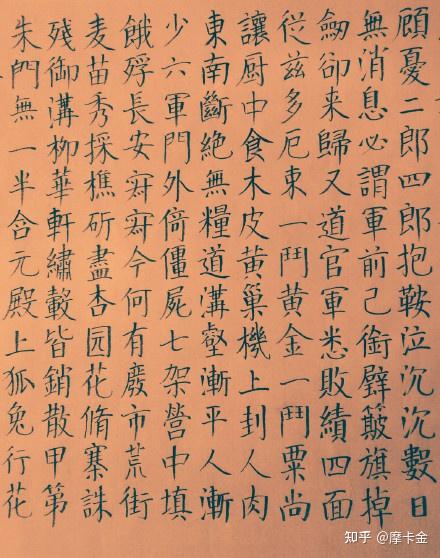 顧憂二郎四郎抱鞍泣沉沉數日
無消息必謂軍前己銜璧簸旗掉
劒卻来歸又道官軍悉敗績四面
従兹多厄東一鬥黄金一鬥粟尚
讓厨中食木皮黄巢機上刲人肉
東南斷絕無糧道溝壑漸平人漸
少六軍門外倚僵屍七架營中填
餓殍長安寂寂今何有廢市荒街
麦苗秀採樵斫盡杏园花脩寨誅
殘御溝柳華軒繡轂皆銷散甲第
朱門無一半含元殿上狐兔行花
知乎 @摩卡金